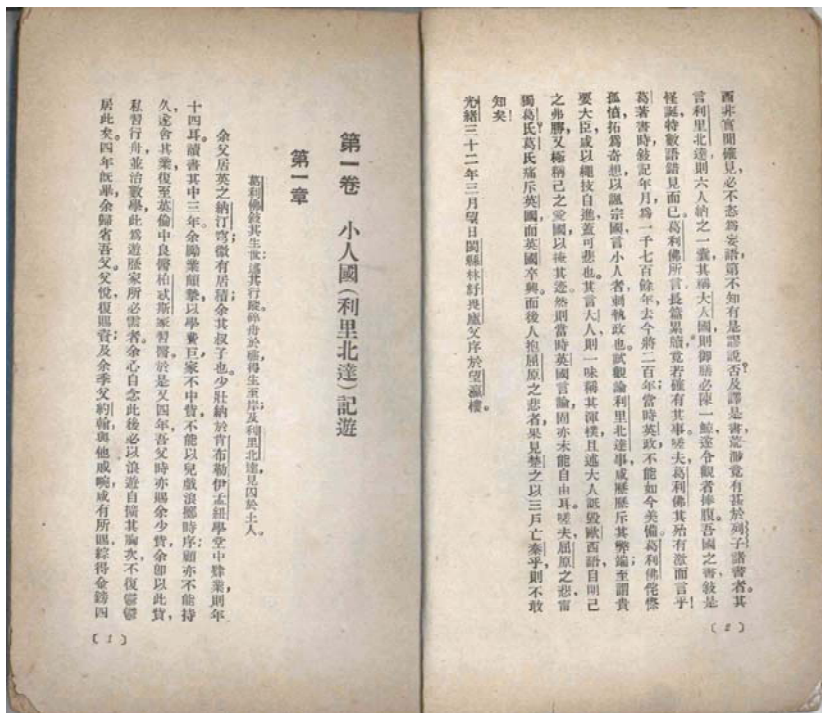 西非實聞確見必不恣爲妄語第不知有是謬說否及譯是書荒渺竟有甚於列子諸書者其
言利里北達則六人納之一囊其稱大人國則御膳必陳一鯨遂令觀者捧腹吾國之書敍是
怪誕特數語錯見而已葛利佛所言長篇累牘竟若確有其事嗟夫葛利佛其殆有激而言乎
葛著書時敍記年月爲一千七百餘年去今將二百年當時英政不能如今美備葛利佛侘傺
孤憤拓爲奇想以諷宗國言小人者刺執政也試觀論利里北達事咸歷歷斥其弊端至謂貴
要大臣咸以繩技自進蓋可悲也其言大人則一味稱其渾樸且述大人詆毀歐西語自明己
之弗勝又極稱己之愛國以掩其迹然則當時英國言論固亦未能自由耳嗟夫屈原之悲甯
獨葛氏葛氏痛斥英國而英國卒興而後人抱屈原之悲者果見楚之以三戶亡秦乎則不敢
知矣
光緒三十二年三月望日閩縣林紓畏廬父序於望瀛樓
〔2〕
第一卷 小人國（利里北達）記遊
第一章
葛利佛敍其生世述其行蹤碎舟於海得生至岸及利里北達見囚於土人
余父居英之納汀穹微有居積余其叔子也少壯納於肯布勒伊孟紐學堂中肄業則年
十四耳讀書其中三年余勵業頗摯以學費巨家不中貲不能以兒戲浪擲時序顧亦不能持
久遂舍其業復至英倫中良醫柏忒斯家習醫於是又四年吾父時亦賜余少貲余卽以此貲
私習行舟並治數學此爲遊歷家所必需者余心自念此後必以浪遊自擴其胸次不復鬱鬱
居此矣四年旣畢余歸省吾父父悅復賜貲及余季父約翰與他戚晼咸有所賜綜得金鎊四
〔1〕